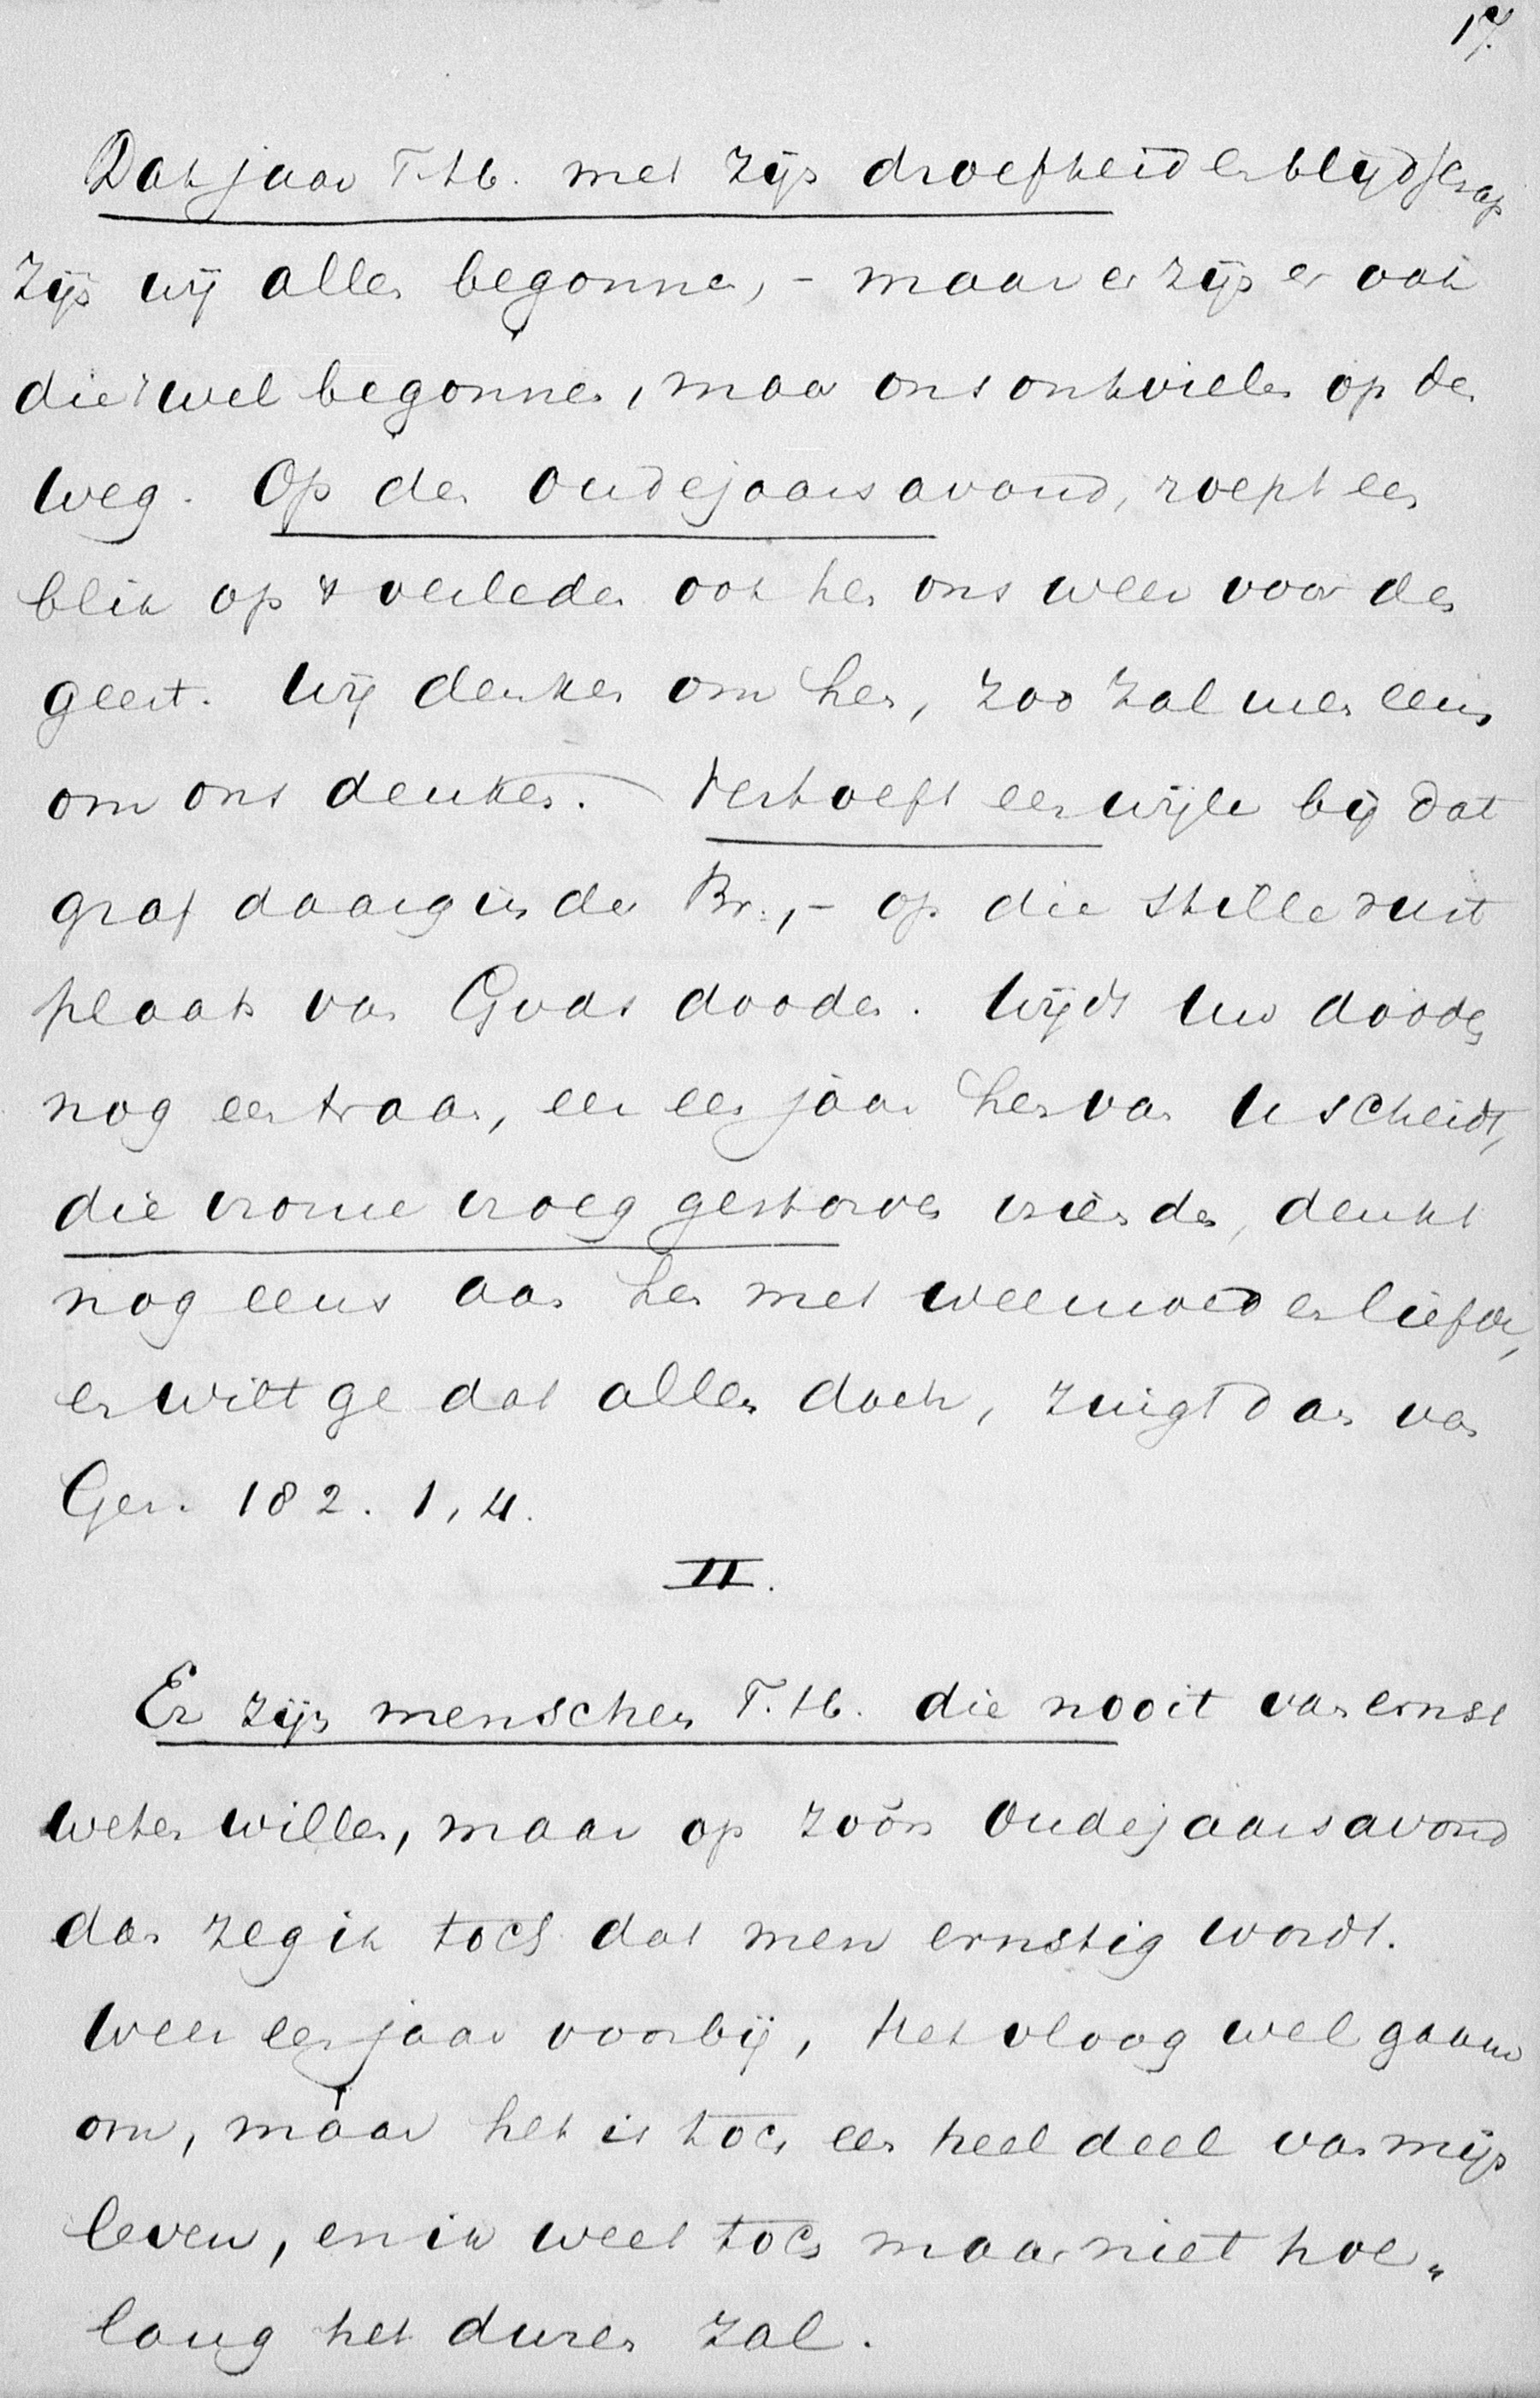 17.
Dat jaar T.H. met zijn droefheid en blijdschap
zijn wij allen begonnen, - maar er zijn er ook
die 't wel begonnen, maar ons ontvielen op den
weg. Op den oudejaarsavond, roept een
blik op 't verleden ook hen ons weer voor den
geest. Wij denken om hen, zoo zal men eens
om ons denken. Vertoeft een wijle bij dat
graf daarginder Br., - op die stille rust
plaats van Gods dooden. Wijdt Uw dooden
nog een traan, eer een jaar hen van U scheidt,
die vrome vroeg gestorven vrienden, denkt
nog eens aan hen met weemoed en liefde,
en wilt ge dat alles doen, zingt dan van
Gez. 182. 1, 4.
II.
Er zijn menschen T.H. die nooit van ernst
weten willen, maar op zoo'n Oudejaarsavond
dan zeg ik toch dat men ernstig wordt.
Weer een jaar voorbij, het vloog wel gauw
om, maar het is toch een heel deel van mijn
leven, en ik weet toch maar niet hoe„
lang het duren zal.